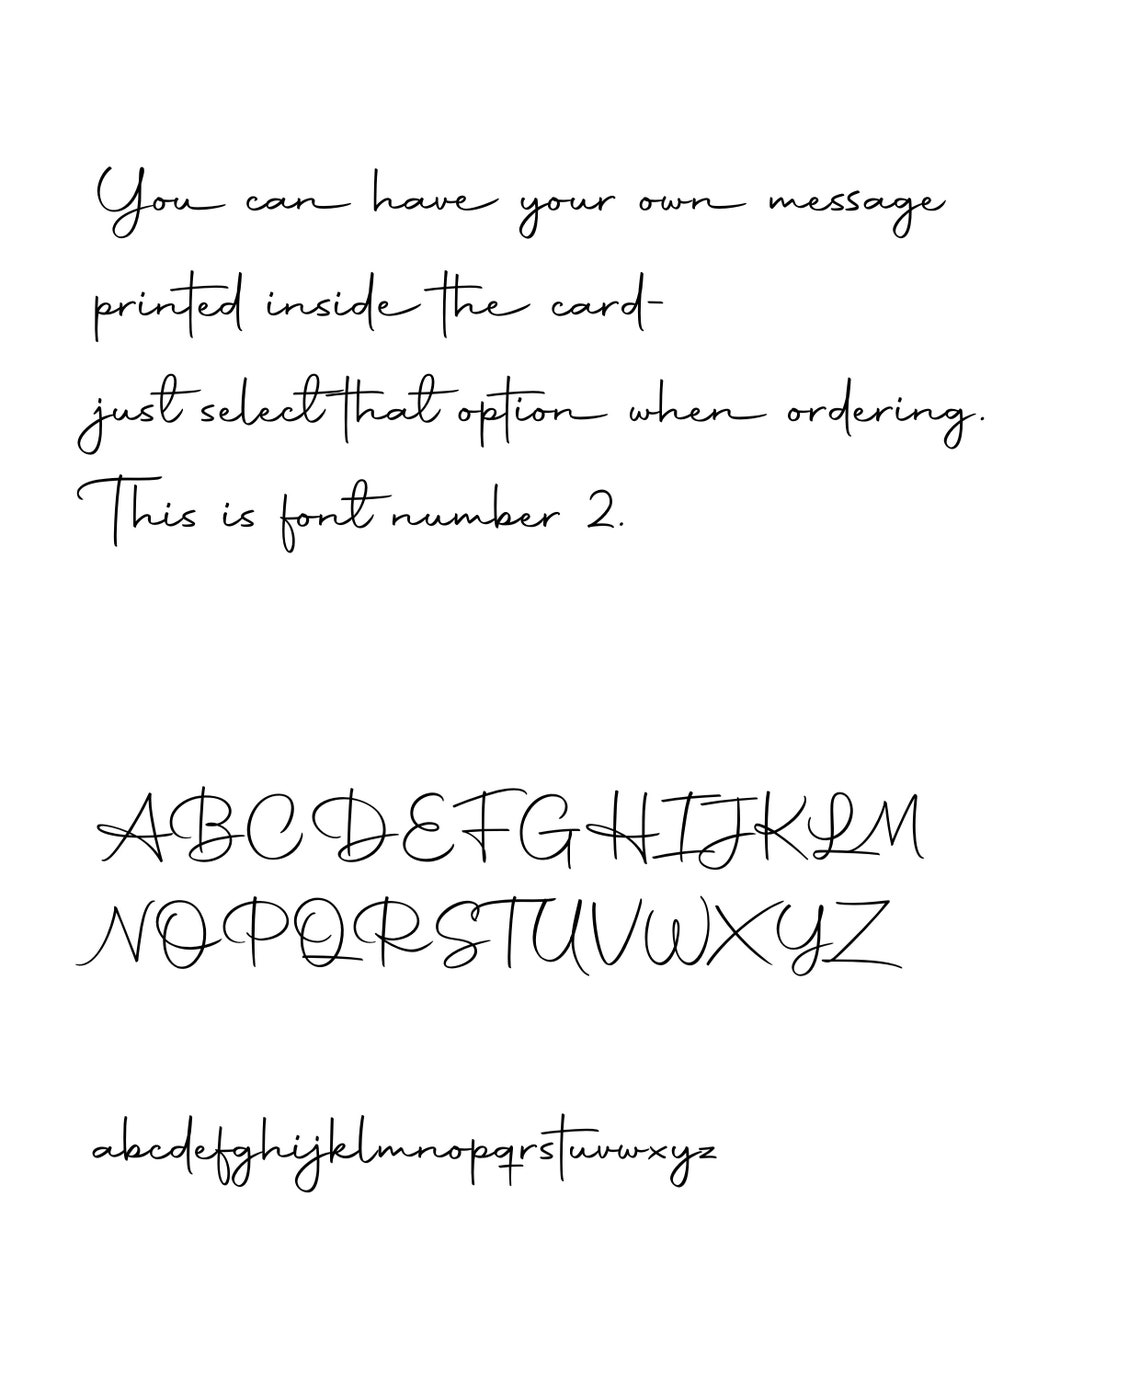 You can have your own message
printed inside the card-
just select that option when ordering.
This is font number 2.
ABCDEFGHIJKLM
NOPQRSTUVWXYZ
abcdefghijklmnopqrstuvwxyz